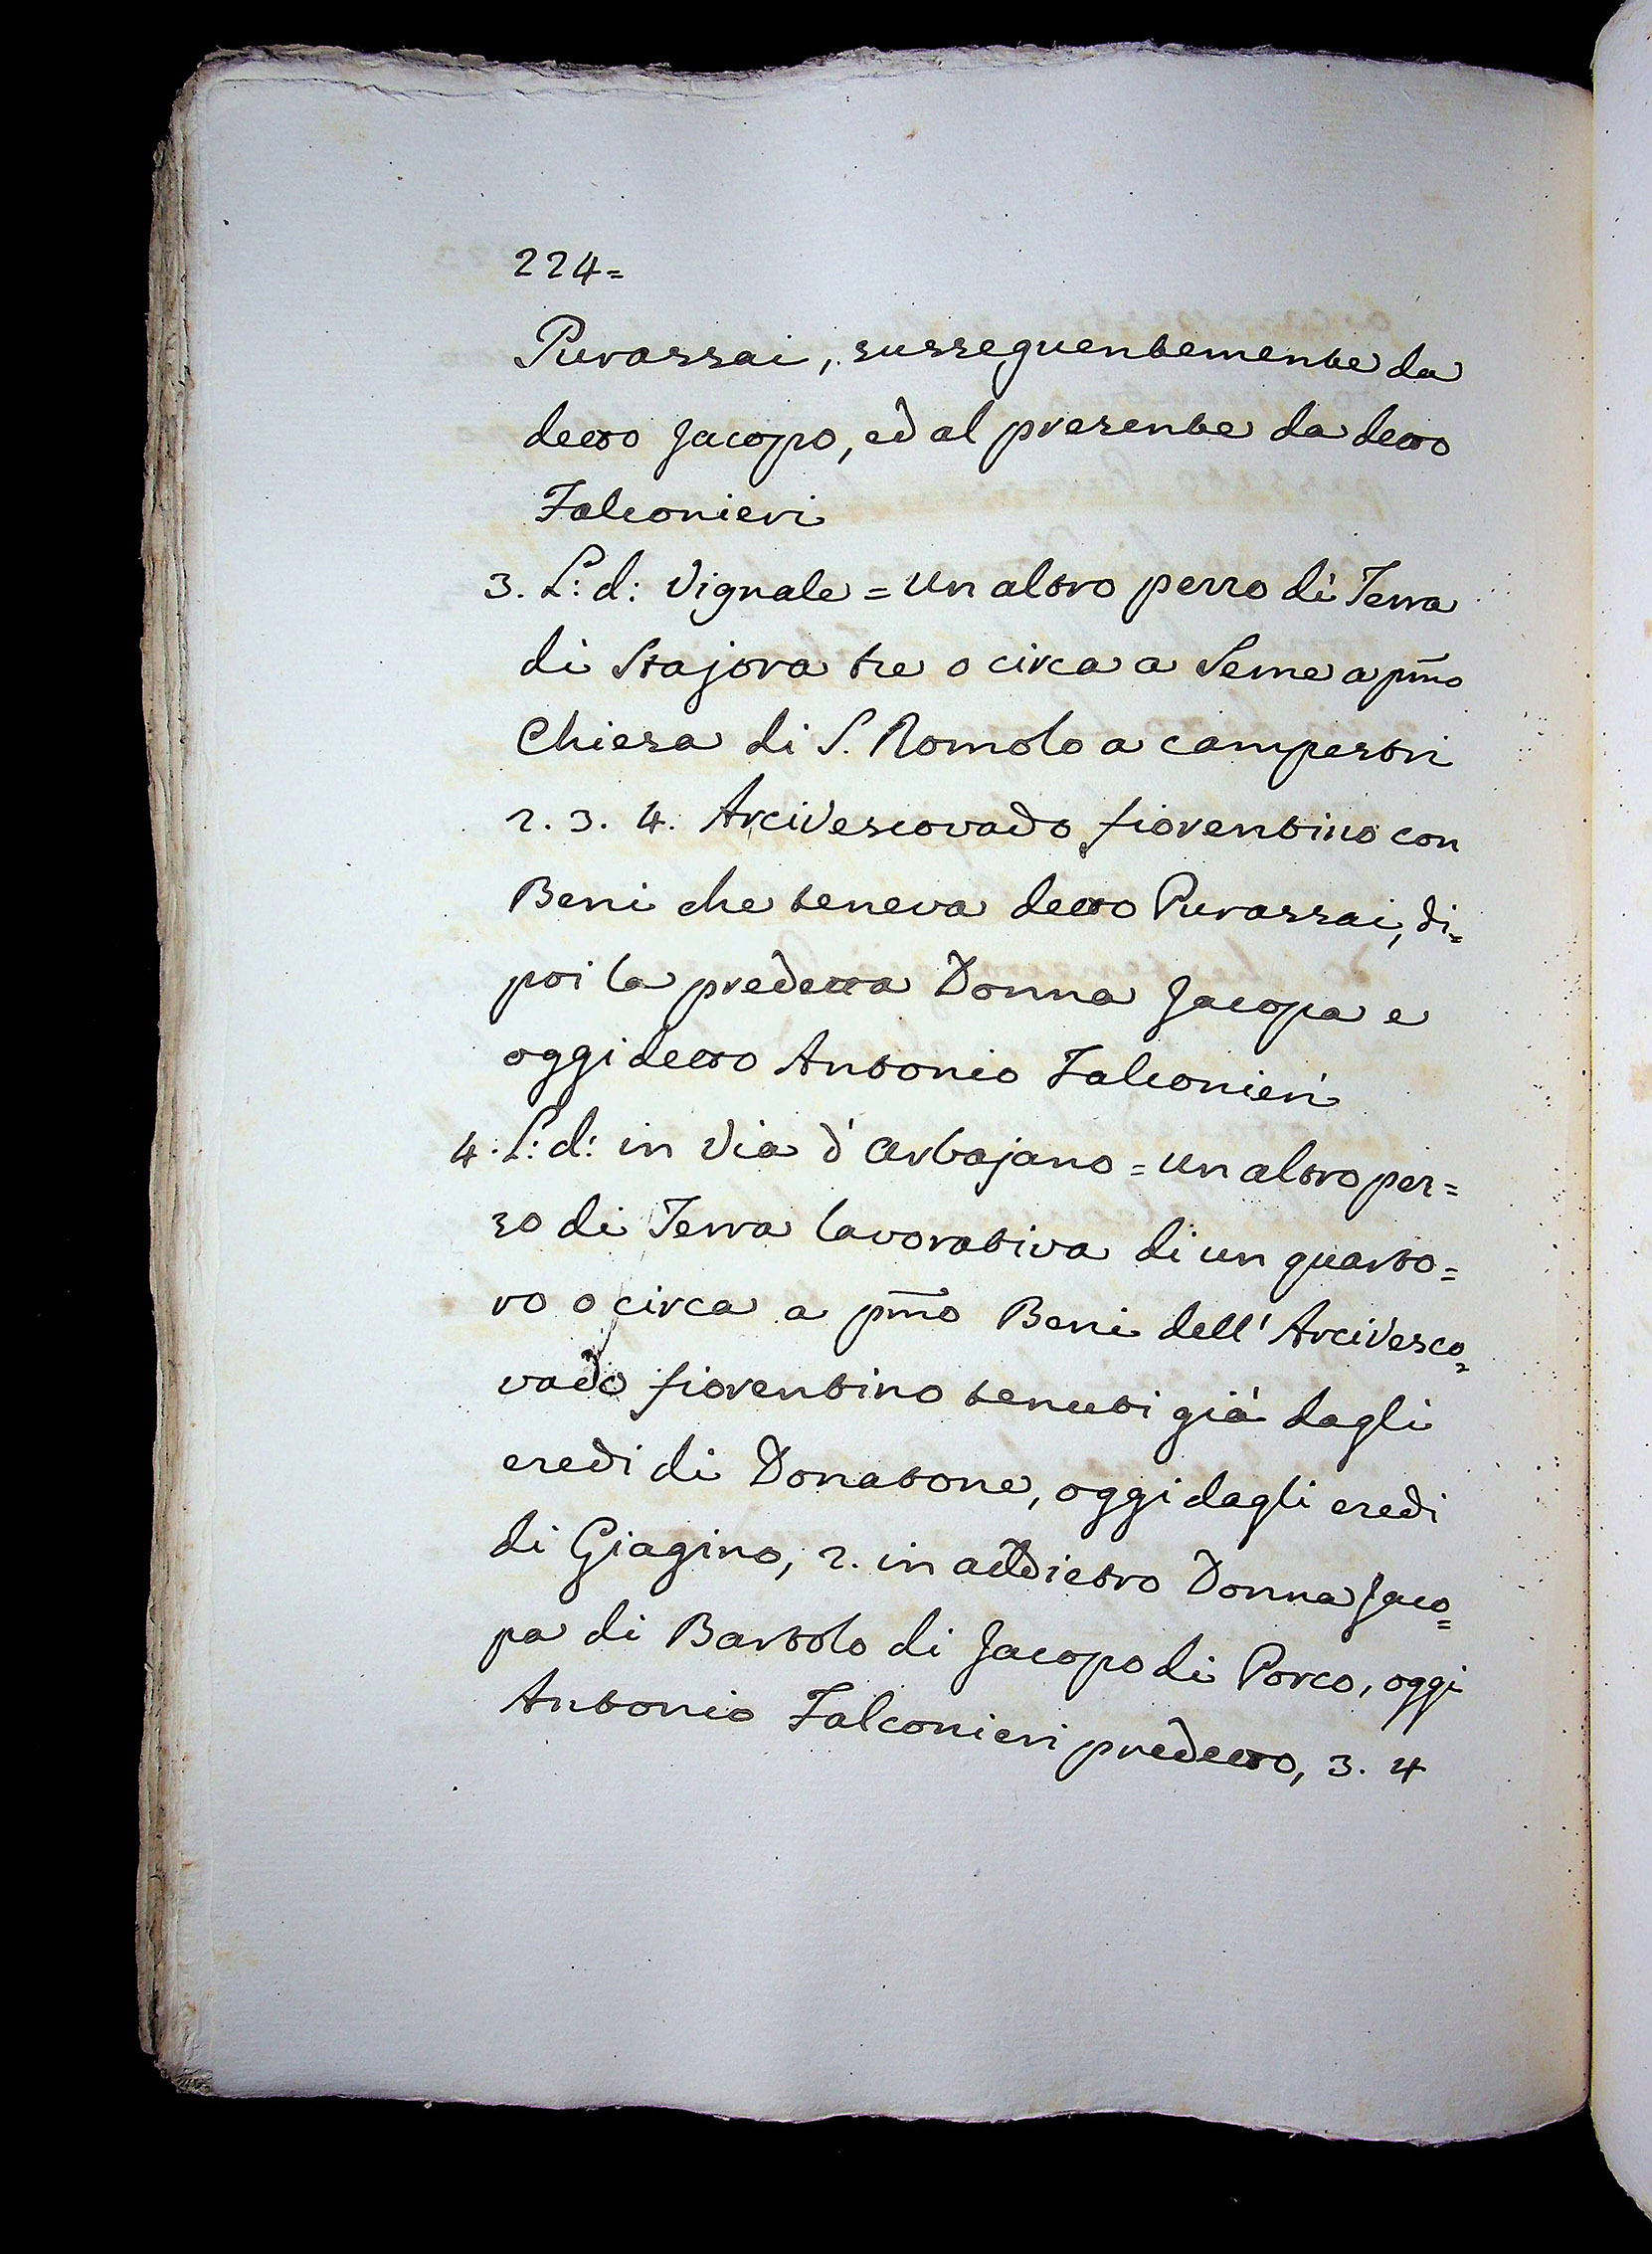 224=
Purassai, susseguentemente da
detto Jacopo, ed al presente da detto
Falconieri
3. L: d: Vignale = Un altro pezzo di Terra
di Stajora tre o circa a Seme a pm̃o
Chiesa di S. Romolo a campestri
2. 3. 4. Arcivescovado fiorentino con
Beni che teneva detto Purassai, di=
poi la predetta Donna Jacopa e
oggi detto Antonio Falconieri
4. L: d: in Via d'Arbajano = Un altro pez=
zo di Terra lavorativa di un quarto=
ro o circa a pm̃o Beni dell'Arcivesco=
vado fiorentino tenuti già dagli
eredi di Donatone, oggi dagli eredi
di Giagino, 2. in addietro Donna Jaco=
pa di Bartolo di Jacopo di Porco, oggi
Antonio Falconieri predetto, 3. 4